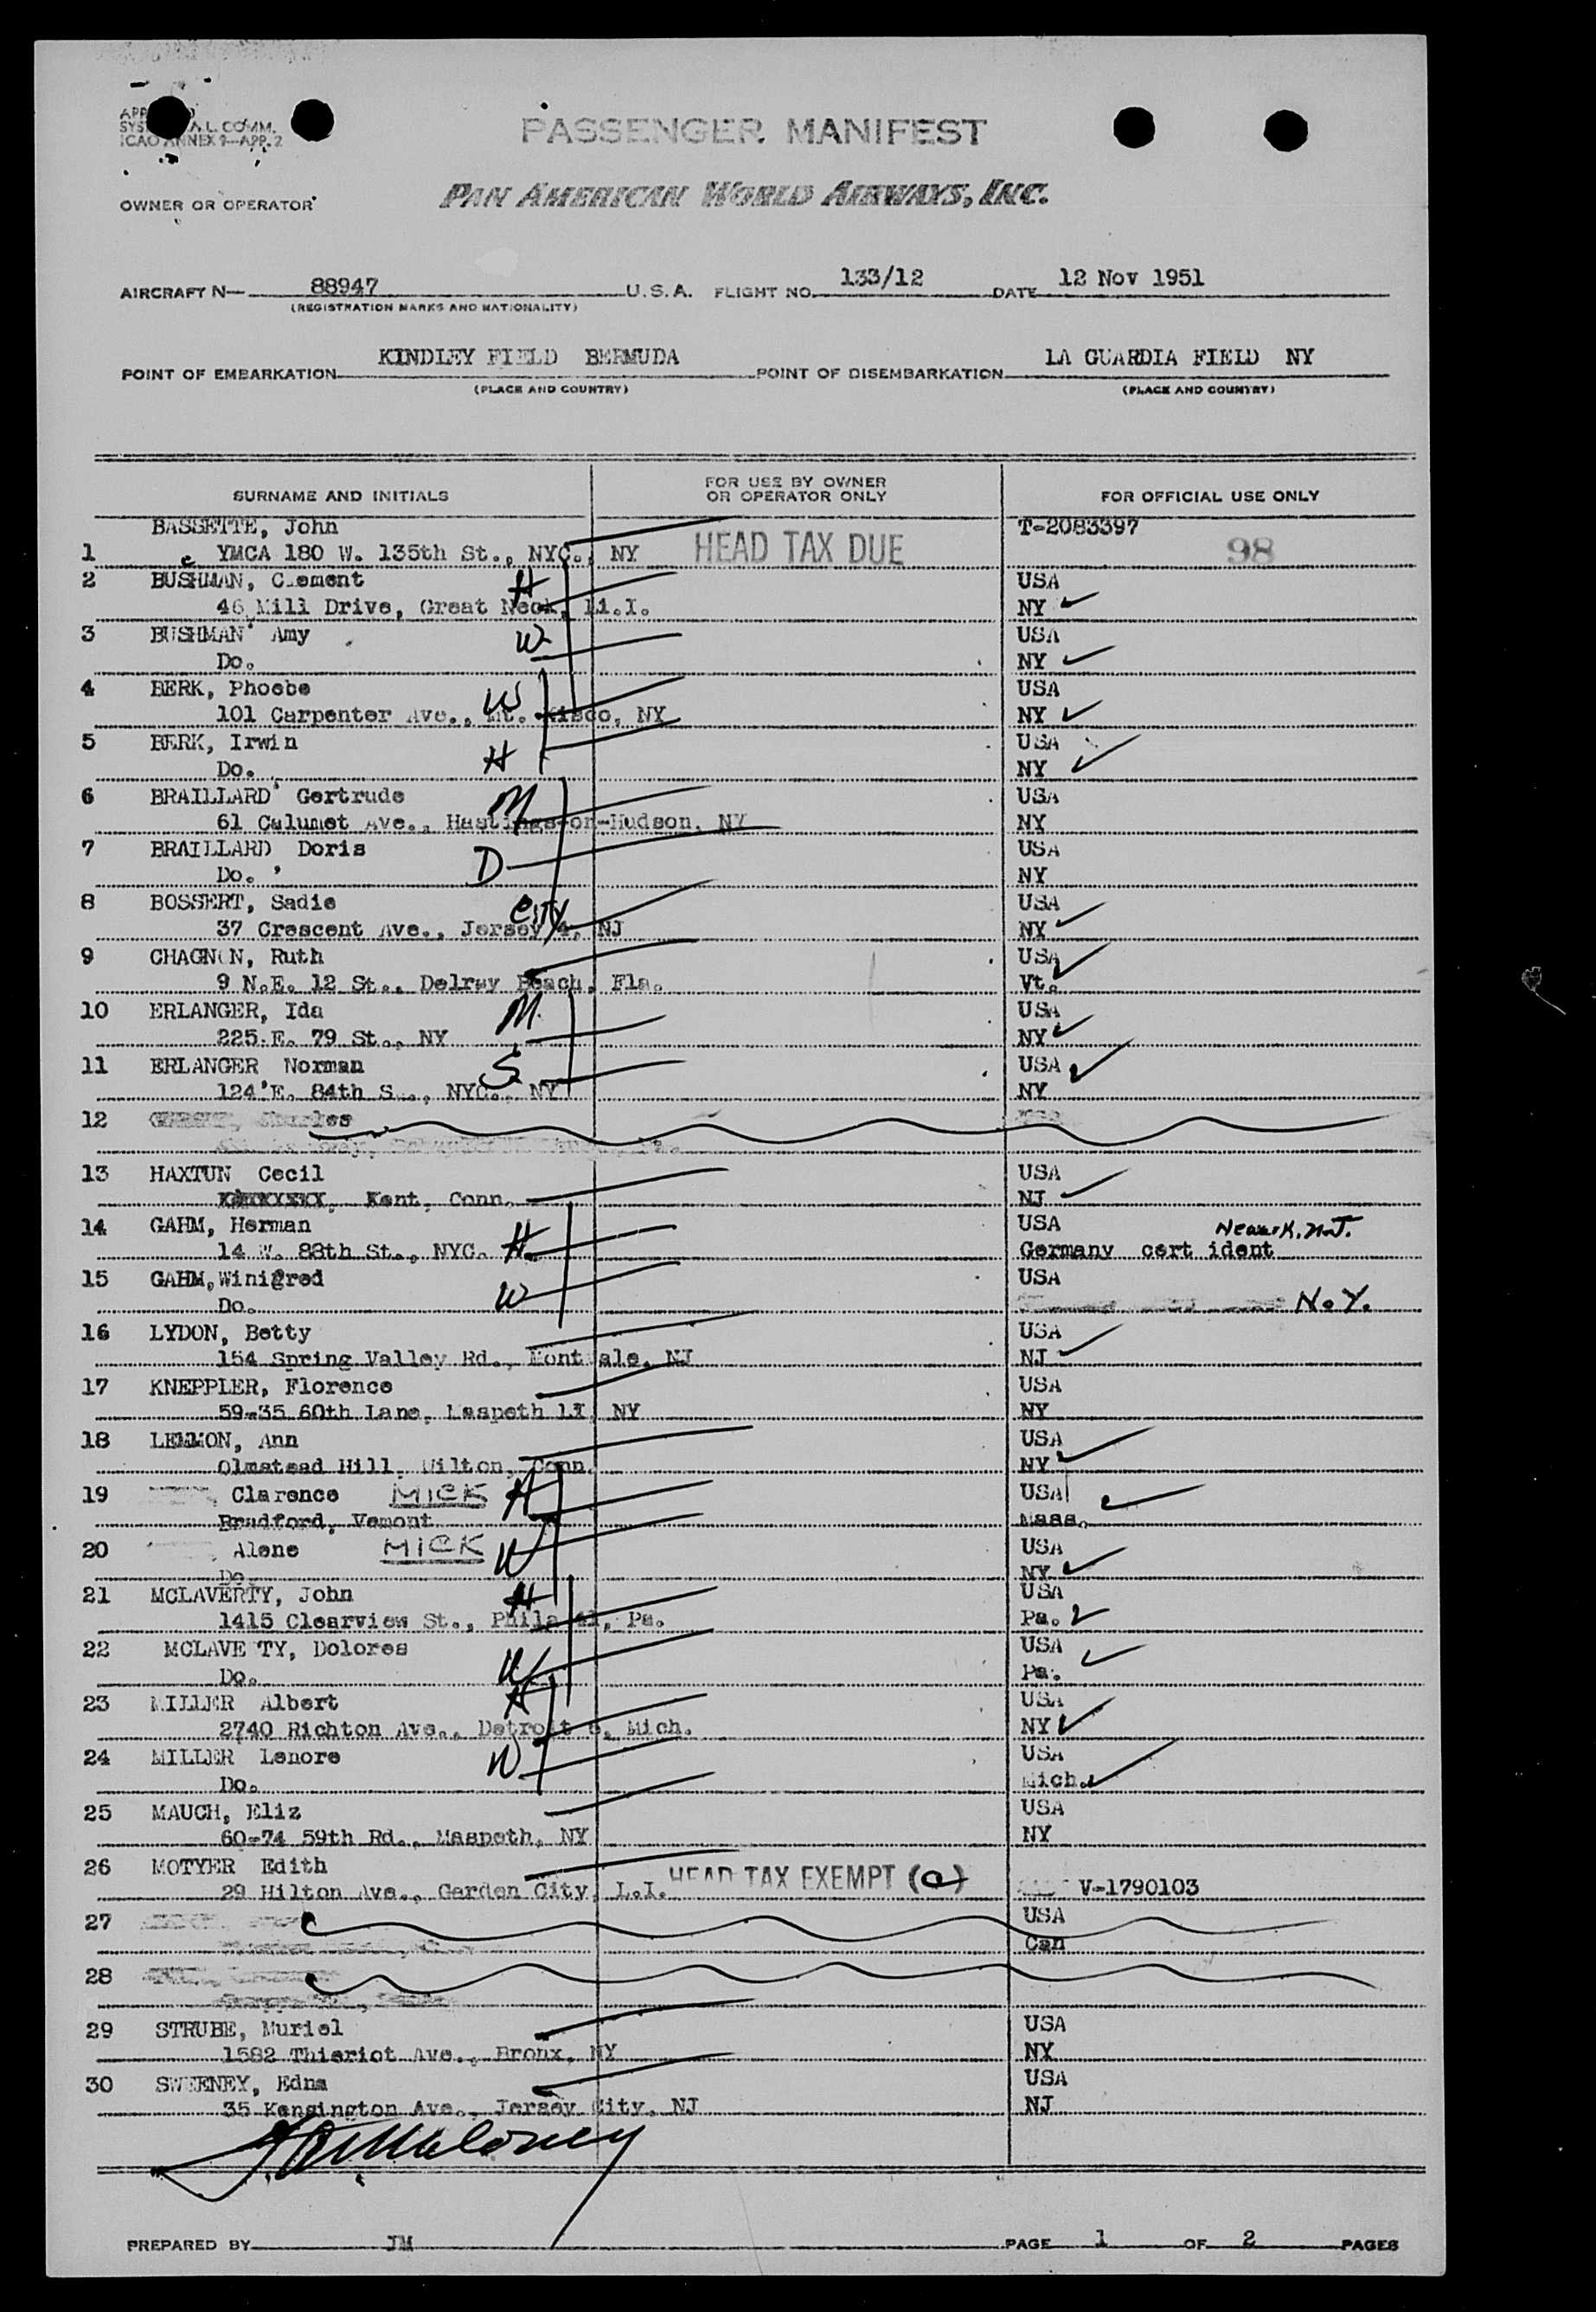 ICAO ANNEX 9—APP. 2
PASSENGER MANIFEST
OWNER OR OPERATOR
PAN AMERICAN WORLD AIRWAYS, INC.
AIRCRAFT N— 88947 U.S.A. FLIGHT NO. 133/12 DATE 12 Nov 1951
(REGISTRATION MARKS AND NATIONALITY)
POINT OF EMBARKATION KINDLEY FIELD BERMUDA POINT OF DISEMBARKATION LA GUARDIA FIELD NY
(PLACE AND COUNTRY) (PLACE AND COUNTRY)
SURNAME AND INITIALS FOR USE BY OWNER OR OPERATOR ONLY FOR OFFICIAL USE ONLY
BASSETTE, John T-2083397
1 YMCA 180 W. 135th St., NYC., NY HEAD TAX DUE 98
2 BUSHMAN, Clement H USA
46 Mill Drive, Great Neck, L.I. NY
3 BUSHMAN' Amy W USA
Do. NY
4 BERK, Phoebe W USA
101 Carpenter Ave., Mt. Kisco, NY NY
5 BERK, Irwin H USA
Do. NY
6 BRAILLARD' Gertrude M USA
61 Calumet Ave., Hastings-on-Hudson, NY NY
7 BRAILLARD Doris D USA
Do. ' NY
8 BOSSERT, Sadie CITY USA
37 Crescent Ave., Jersey 4, NJ NY
9 CHAGNON, Ruth USA
9 N.E. 12 St., Delray Beach, Fla. Vt.
10 ERLANGER, Ida M USA
225 E. 79 St., NY NY
11 ERLANGER Norman S USA
124'E. 84th S., NYC., NY NY
12
13 HAXTUN Cecil USA
Kent, Conn. NJ
14 GAHM, Herman H USA Newark. N.J.
14 W. 88th St., NYC. Germany cert ident
15 GAHM, Winifred W USA
Do. N.Y.
16 LYDON, Betty USA
154 Spring Valley Rd., Montvale, NJ NJ
17 KNEPPLER, Florence USA
59-35 60th Lane, Maspeth LI, NY NY
18 LEMMON, Ann USA
Olmstead Hill, Wilton, Conn. NY
19 , Clarence MICK H USA
Bradford, Vemont Mass.
20 , Alene MICK W USA
Do. NY
21 MCLAVERTY, John H USA
1415 Clearview St., Phila 41, Pa. Pa.
22 MCLAVE TY, Dolores W USA
Do. Pa.
23 MILLER Albert H USA
2740 Richton Ave., Detroit 6, Mich. NY
24 MILLER Lenore W USA
Do. Mich.
25 MAUCH, Eliz USA
60-74 59th Rd., Maspeth, NY NY
26 MOTYER Edith HEAD TAX EXEMPT (a)
29 Hilton Ave., Garden City, L.I. V-1790103
27 USA
Can
28
29 STRUBE, Muriel USA
1582 Thieriot Ave., Bronx, NY NY
30 SWEENEY, Edna USA
35 Kensington Ave., Jersey City, NJ NJ
PREPARED BY JM PAGE 1 OF 2 PAGES